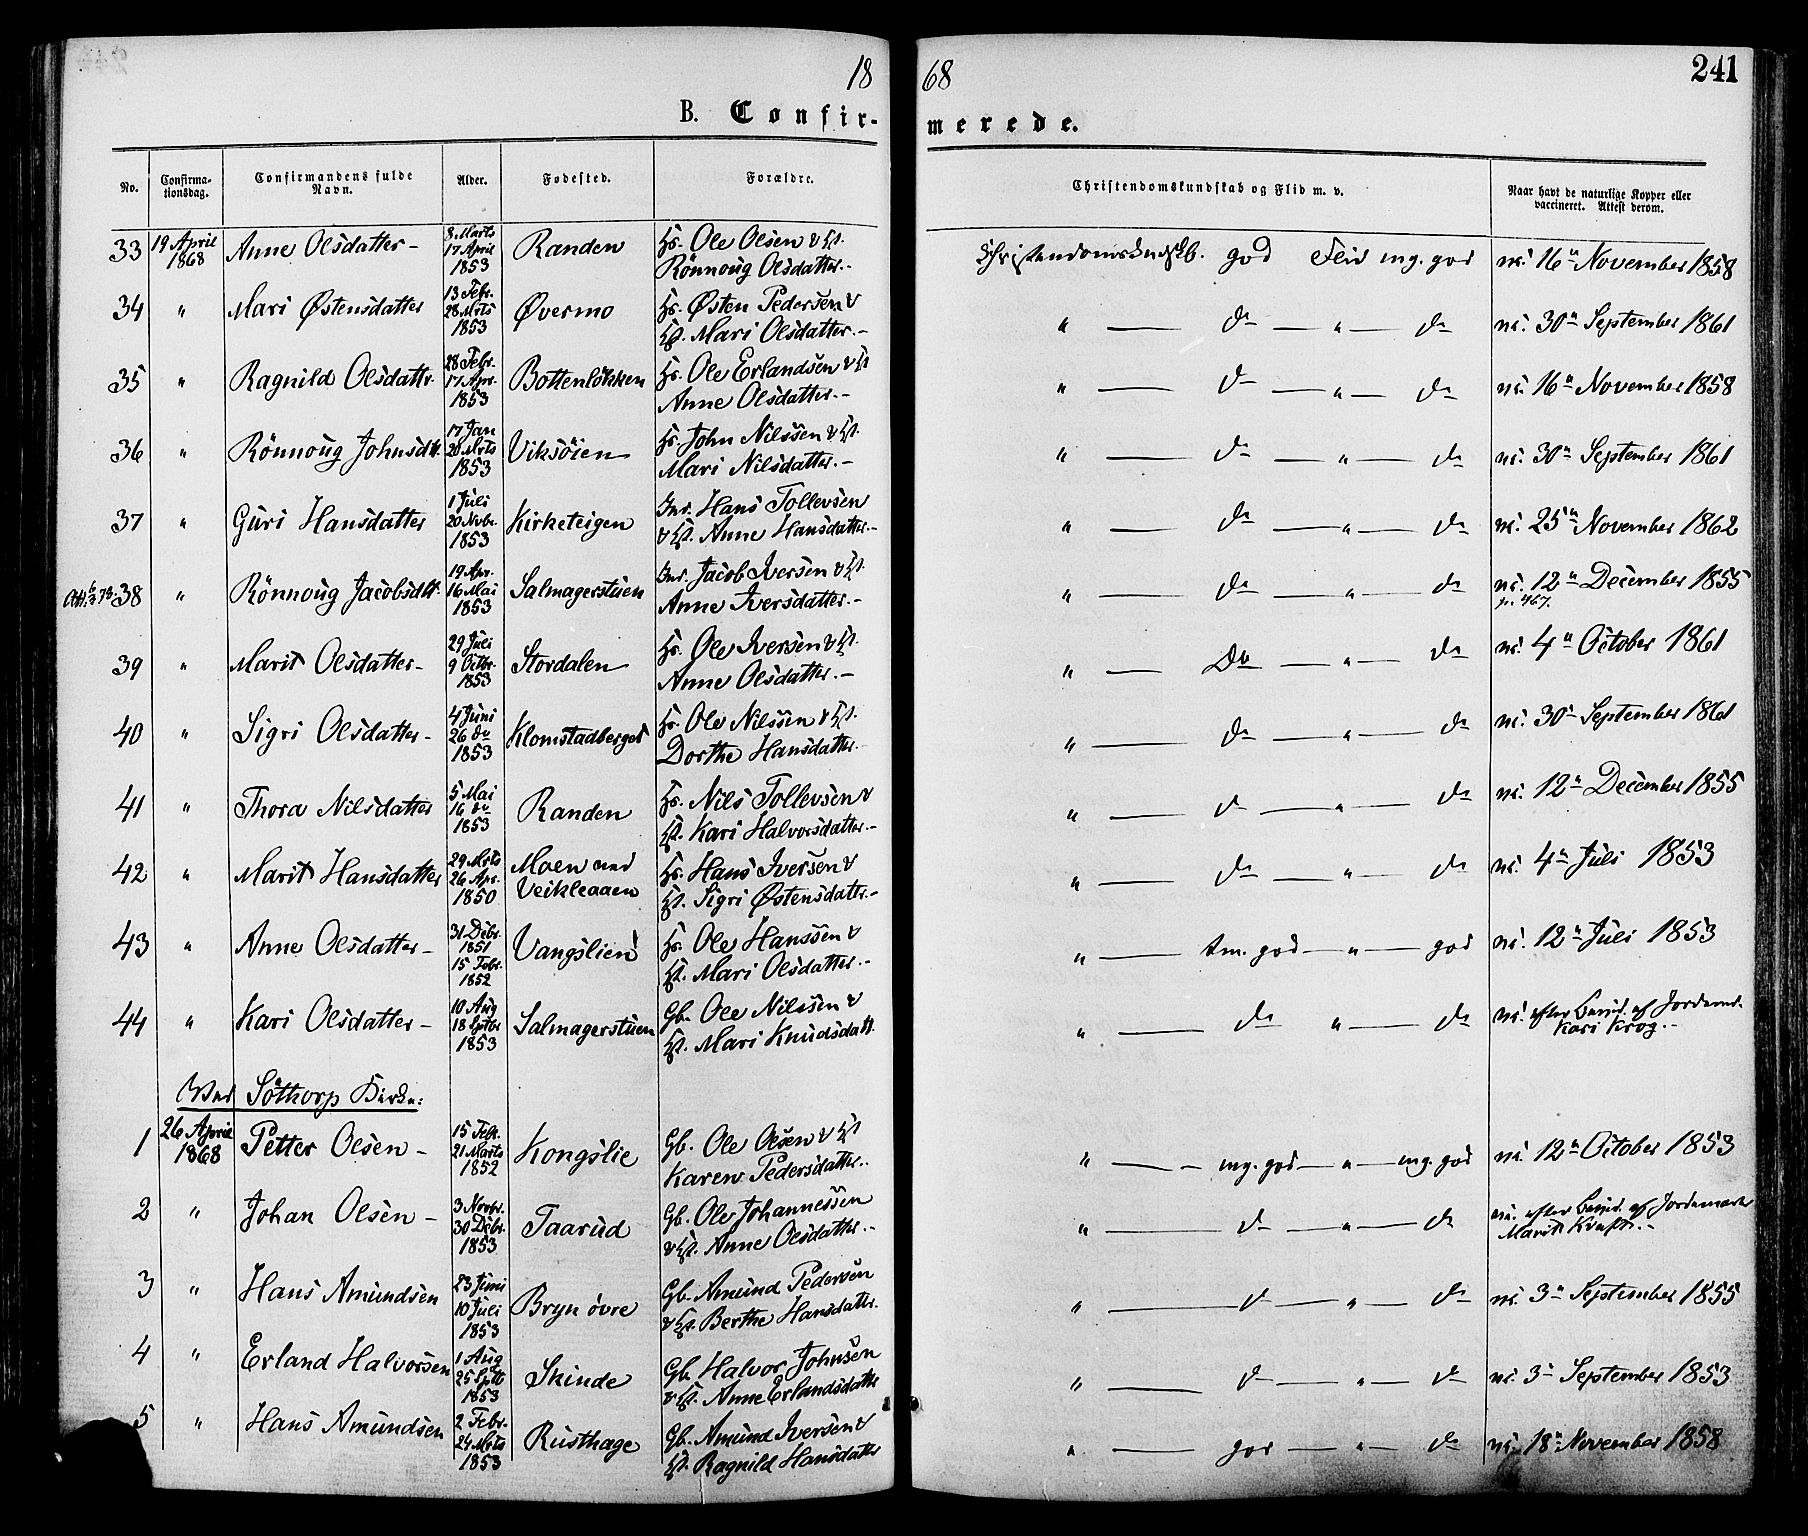 18 68 241
B. Confir- merede.
No. Confirma- Confirmandens fulde Alder. Fødested. Forældre. Christendomskundskab og Flid m. v. Naar havt de naturlige Kopper eller
tionsdag. Navn. vaccineret. Attest derom.
33 19 April 1868 Anne Olsdatter - 8 Marts 17 April 1853 Randen Hs. Ole Olsen & Hst. Rönnoug Olsdatter.- Christendomskndskb. god Flid mg. god vi. 16de November 1858
34 " Mari Østensdatter 13 Febr. 28 Mrts 1853 Øvermo Hs. Østen Pedersen & Hst. Mari Olsdatter.- " — do — " — do vi. 30de September 1861
35 " Ragnild Olsdattr. 28 Febr. 17 Apr. 1853 Bottenlökken Hs. Ole Erlandsen & Hst Anne Olsdatter.- " — do — " — do vi. 16de November 1858
36 " Rönnoug Johnsdtr. 17 Jan 20 Mrts 1853 Viksöien Hs. John Nilssen & Hst. Mari Nilsdatter.- " — do — " — do vi. 30de September 1861
37 " Guri Hansdatter 1 Juli 20 Novbr. 1853 Kirketeigen Inr. Hans Tollevsen & Hst. Anne Hansdatter.- " — do — " — do vi. 25de November 1862
38 " Rönnoug Jacobsdtr. 19 Apr. 16 Mai 1853 Salmagerstuen Inr. Jacob Iversen & Hst. Anne Iversdatter.- " — do — " — do vi. 12de December 1855
p. 467.
39 " Marit Olsdatter - 29 Juli 9 Octbr. 1853 Stordalen Hs. Ole Iversen & Hst. Anne Olsdatter.- " — Do — " — do vi. 4de October 1861
40 " Sigri Olsdatter - 4 Juni 26 do 1853 Klomstadberget Hs. Ole Nilssen & Hst. Dorthe Hansdatter.- " — do — " — do vi. 30de September 1861
41 " Thora Nilsdatter 5 Mai 16 do 1853 Randen Hs. Nils Tollevsen & Hst. Kari Halvorsdatter.- " — do — " — do vi. 12de December 1855
42 " Marit Hansdatter 29 Mrts 26 Apr. 1850 Moen ved Veikleaaen Hs. Hans Iversen & Hst. Sigri Østensdattr.- " — do — " — do vi. 4de Juli 1853
43 " Anne Olsdatter - 31 Debr. 1851 15 Febr. 1852 Vangslien Hs. Ole Hanssen & Hst. Mari Olsdatter.- " — tm. god — " — god vi. 12de Juli 1853
44 " Kari Olsdatter - 10 Aug 18 Sptbr 1853 Salmagerstuen Gb. Ole Nilssen & Hst. Mari Knudsdatt. " — do " — do vi. efter Bevid. af Jordemd.
Kari Krog.-
Ved Söthorp Kirke:
1 26 April 1868 Petter Olsen - 15 Febr. 21 Marts 1852 Kongslie Gb. Ole Olsen & Hst Karen Pedersdatter.. " — mg. god — " — mg. god vi. 12de October 1853
2 " Johan Olsen - 3 Novbr. 30 Debr. 1853 Taarud Gb. Ole Johannessen & Hst. Anne Olsdatter.- " — do — " — do vi. efter Bevid. af Jordemoder
Marit Kraft.-
3 " Hans Amundsen 23 Juni 10 Juli 1853 Bryn övre Gb. Amund Pedersen & Hst. Berthe Hansdatter. " — do — " — do vi. 3de September 1855
4 " Erland Halvorsen 1 Aug 25 Sptb 1853 Skinde Gb. Halvor Johnsen & Hst. Anne Erlandsdatter " — do — " — do vi. 3de September 1853
5 " Hans Amundsen 2 Febr. 24 Mrts 1853 Rusthage Gb. Amund Iversen & Hst. Ragnild Hansdatter " — god — " — do vi. 18de November 1858